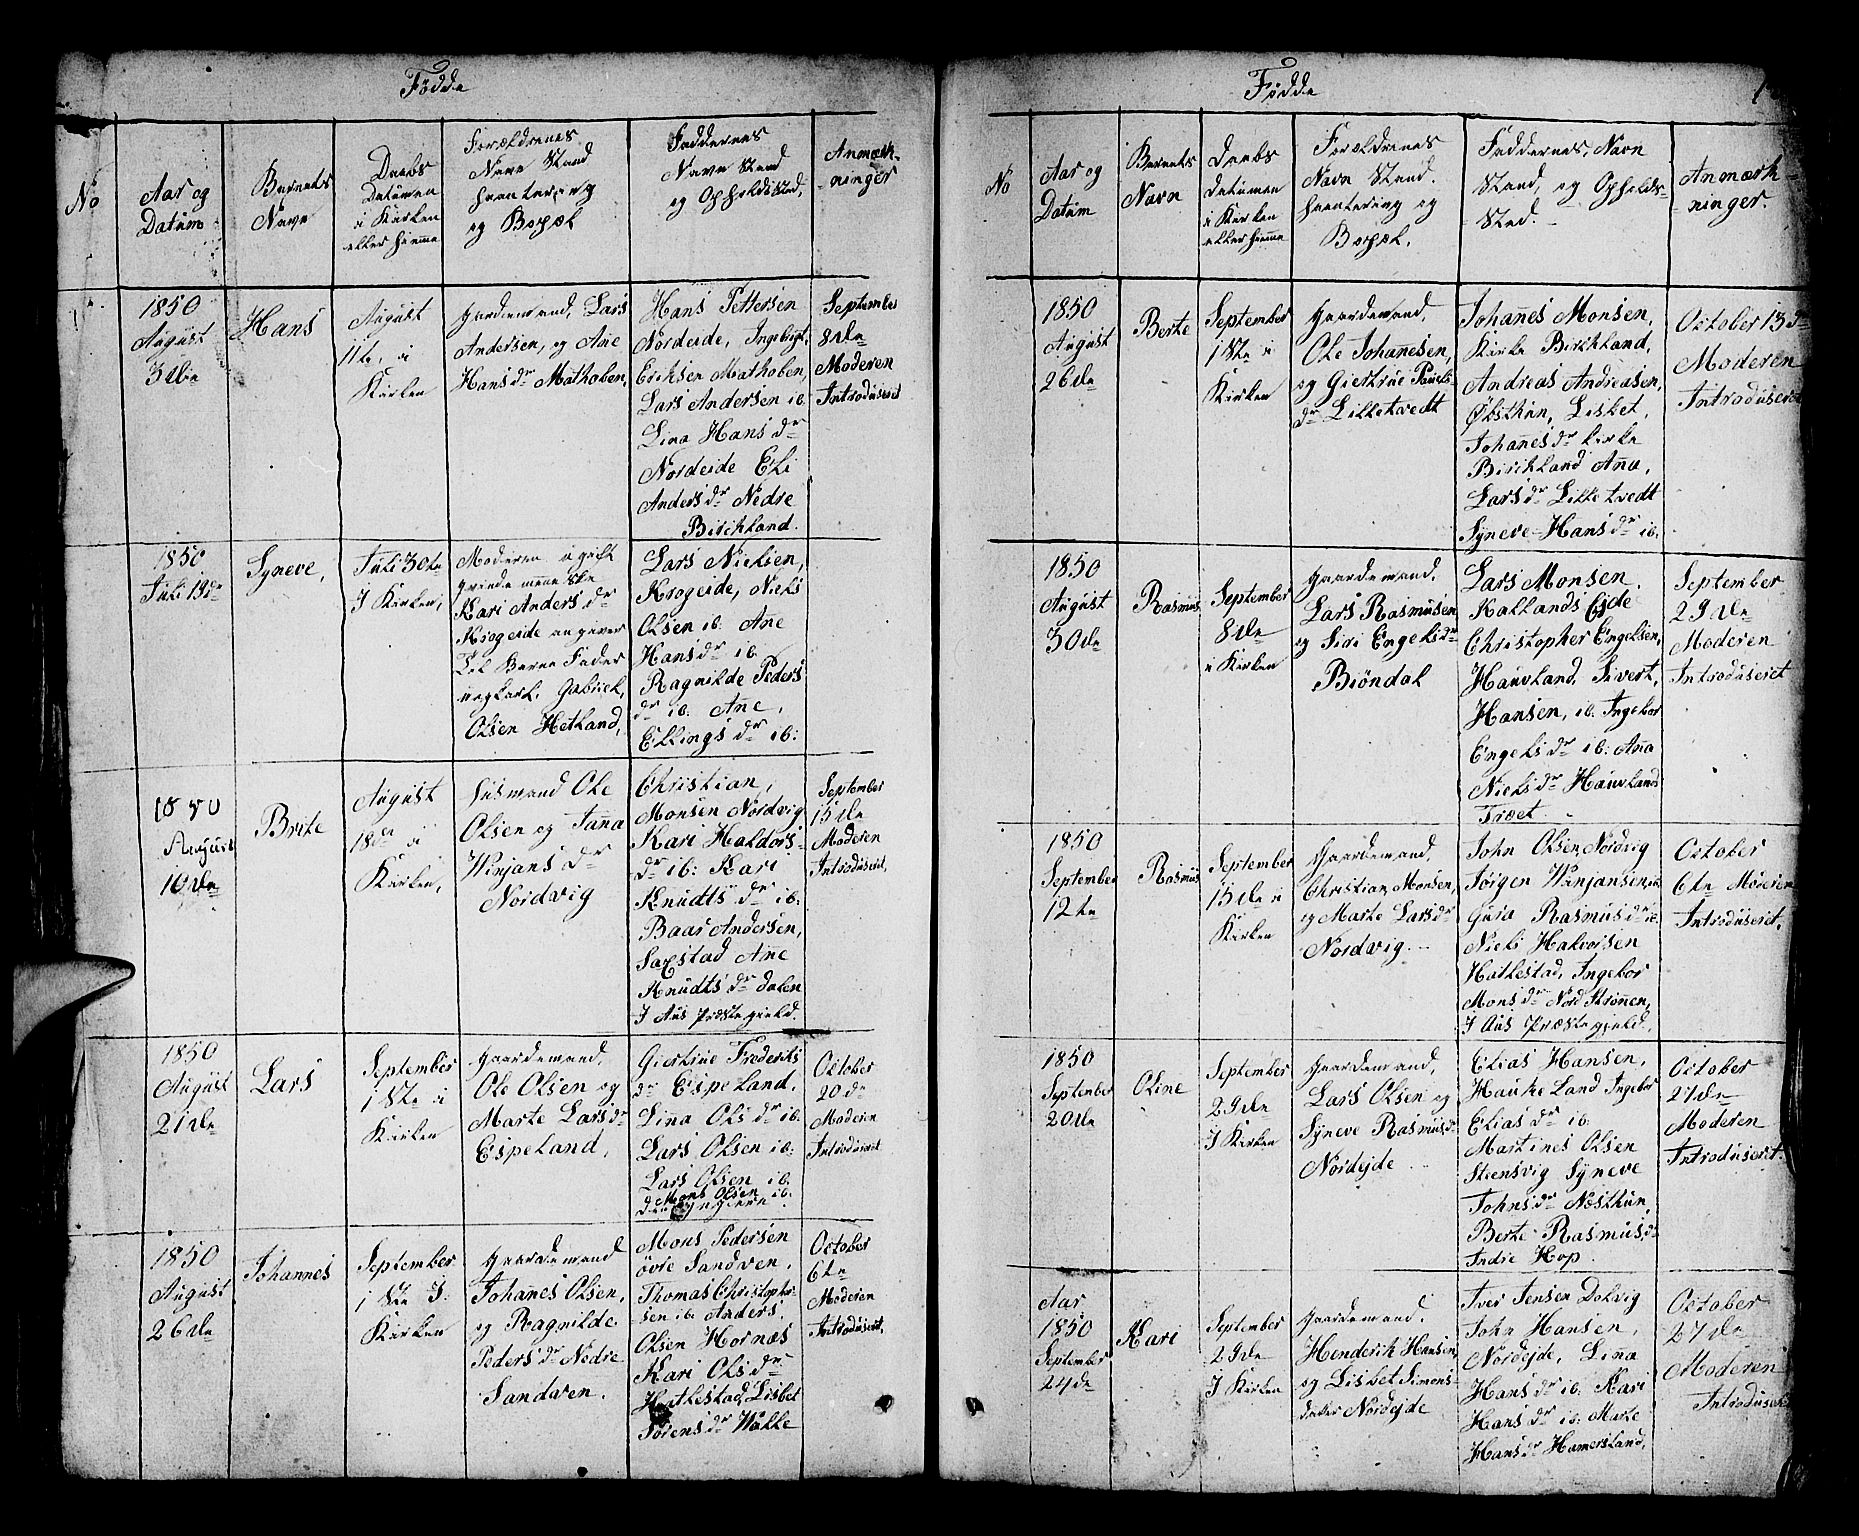 Fødde
No
Aar og
Datum
Barnets
Navn
Daabs
Datumen
i Kirken
eller hiemme
Forældrenes
Navn Stand
haantering
og Bopæl
Faddernes
Navn Stand
og Opholdsted,
Anmærk-
ninger
1850
August
3die
Hans
August
11te, i
Kirken
Gardemand, Lars
Andersen, og Ane
Hans dr Mathoben,
Hans Pettersen
Nordeide, Ingebrigt,
Eriksen Mathoben,
Lars Andersen ib.
Lina Hans dr
Nordeide Eli
Anders dr Nedre
Birchland.
September
8de
Moderen
Introduseret
1850
Juli 19de
Syneve,
Juli 30te
I Kirken,
Moderen ugift
qvindemenneske
Kari Anders dr
Krogeide angiver
Til Barne Fader
ungkarl, Gabriel,
Olsen Hetland,
Lars Nielsen,
Krogeide, Niels
Olsen ib. Ane
Hans dr ib.
Ragnilde Peders
dr ib. Ane,
Ellings dr ib:
1850
August
10de
Brite
August
18de i
Kirken,
Husmand Ole
Olsen og Janna
Winjans dr
Nordvig
Christian,
Monsen Nordvig
Kari Haldors-
dr ib: Kari
Knudts dr ib:
Baar Andersen,
Saxstad Ane
Knudts dr dalen
I Aus Præstegield.
September
15de
Moderen
Introduseret,
1850
August
21de
Lars
September
1ste i
Kirken
Gaardemand,
Ole Olsen og
Marte Lars dr
Espeland,
Giertrue Frederiks
dr Espeland,
Lina Ols dr ib:
Lars Olsen ib:
Lars Olsen ib.
Mons Olsen ib.
den yngerre.
October
20de
Moderen
Introduseret
1850
August
26de
Johannes
September
1ste I
Kirken
Gaardemand
Johanes Olsen,
og Ragnilde
Peders dr Nedre
Sandven.
Mons Pedersen
øvre Sandven,
Thomas Christopher-
sen ib. Anders,
Olsen Hornæs
Kari Ols dr
Hatlestad, Lisbet
Sørens dr Walle
October
6te
Moderen
Introduseret,
Fødde
No
Aar og
Datum
Barnets
Navn
Daabs
Datumen
i Kirken
eller hiemme
Forældrenes
Navn Stand.
haantering og
Bopæl,
Faddernes, Navn
Stand, og Opholds-
Sted.
Anmærk-
ninger.
1850
August
26de
Berte
September
1ste i
Kirken
Gaardemand,
Ole Johanesen,
og Giertrue Pauels
dr Lilletvedt
Johanes Monsen,
Kirke Birchland,
Andreas Andreasen,
Øksthun, Lisbet,
Johanes dr kirke
Birchland Ana,
Lars dr Lilletvedt
Syneve Hans dr ib.
October 13de
Moderen
Introduseret
1850
August
30de
Rasmus
September
8de
i Kirken
Gaardemand,
Lars Rasmusen
og Siri Engels dr
Biøndal
Lars Monsen,
Kallands Ejde
Christopher Engelsen,
Hauvland, Sivert,
Hansen, ib. Ingebor
Engels dr ib: Ana
Niels dr Hauvlands
Træet.
September
29de
Moderen
Introduseret
1850
September
12te
Rasmus
September
15de i
Kirken
Gaardemand,
Christian Monsen,
og Marte Lars dr
Nordvig.
John Olsen, Nordvig
Jørgen Winjansen, ib.
Gura Rasmus dr ib.
Niels Halvorsen
Hatlestad, Ingebor
Mons dr Nord Strønen,
I Aus Præstegjeld,
October
6te Moderen
Introduseret.
1850
September
20de
Oline
September
29de
I Kirken
Gaardemand,
Lars Olsen og
Syneve Rasmus dr
Nordejde
Elias Hansen,
Haukeland Ingebor
Elias dr ib.
Martines Olsen
Steensvig Syneve
Johns dr Næsthun,
Berte Rasmus, dr
Indre Hop.
October
27de
Moderen
Introduseret.
Aar
1850
September
24de
Kari
September
29de
I Kirken
Gaardemand,
Henderik Hansen,
og Lisbet Simons-
datter Nordejde
Iver Jensen Dolvig
John Hansen,
Nordejde, Lina
Hans dr ib. Kari
Hans dr ib: Marte
Hans dr Hamersland,
October
27de
Moderen
Introduseret